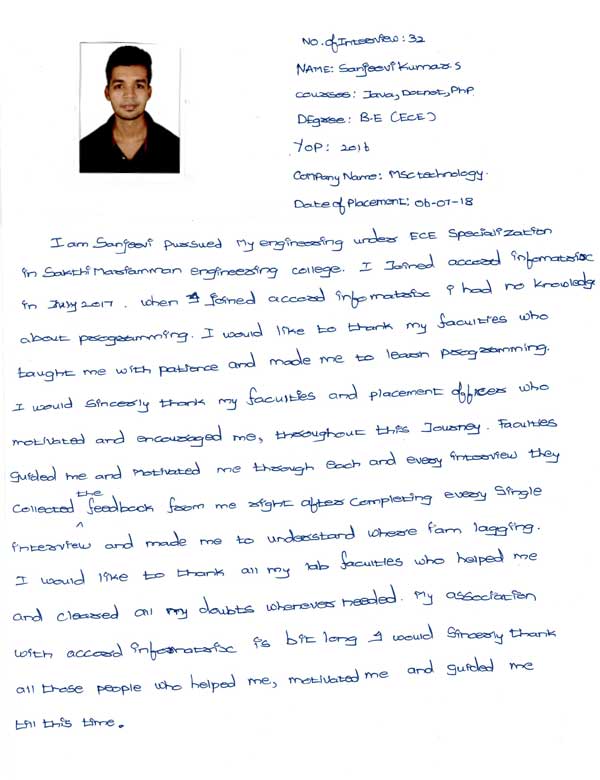 No. of Interview: 32
NAME: Sanjeevi Kumar.S
Courses: Java, Dotnet, PHP
DEgree: B.E (ECE)
YOP: 2016
Company Name: MSC technology.
Date of Placement: 06-07-18
I am Sanjeevi pursued My engineering under ECE Specialization
in Sakthi Mariamman engineering college. I Joined accord infomatrix
in July 2017. when I joined accord infomatrix i had no knowledge
about programming. I would like to thank my faculties who
taught me with patience and made me to learn programming.
I would Sincerly thank my faculties and placement officers who
motivated and encouraged me, throughout this Journey. Faculties
guided me and Motivated me through Each and every interview they
Collected the feedback from me right after Completing every Single
interview and made me to understand where i'am lagging.
I would like to thank all my lab faculties who helped me
and cleared all my doubts whenever needed. My association
with accord informatrix is bit long I would Sincerly thank
all those people who helped me, motivated me and guided me
till this time.